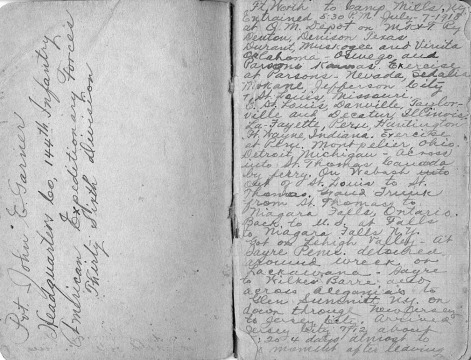 Pvt John E Garner
Headquarters Co, 144th Infantry
American Expeditionary Forces
Thirty Sixth Division
Ft. Worth to Camp Mills, N.Y.
Entrained 5:30 P.M. July-7-1918
at Q.M. Depot on M.K.&T. Ry
Denton, Denison Texas
Durant, Muskogee and Vinita
Oklahoma - Oswego and
Parsons Kansas. Exercise
at Parsons. Nevada, Sedalia
Mokane, Jefferson City
St. Louis, Missouri
E. St. Louis, Danville, Taylor-
ville and Decatur Illinois.
La-Fayette, Peru, Huntington
Ft Wayne, Indiana. Exercise
at Peru. Montpelier Ohio.
Detroit, Michigan - across
into St. Thomas Canada
by ferry. On Wabash
out of St. Louis to St.
Thomas, Grand Trunk
from St. Thomas to
Niagara Falls, Ontario.
Back to U.S. at Falls
to Niagara Falls N.Y.
got on Lehigh Valley - At
Sayre Penn. detoured
around wreck on
Lackawanna - Sayre
to Wilkes Barre, and
across
Glen Summit on
down through New Jersey
to Jersey City. Arrived
Jersey City, N.J. about
4 days almost to
moment after leaving